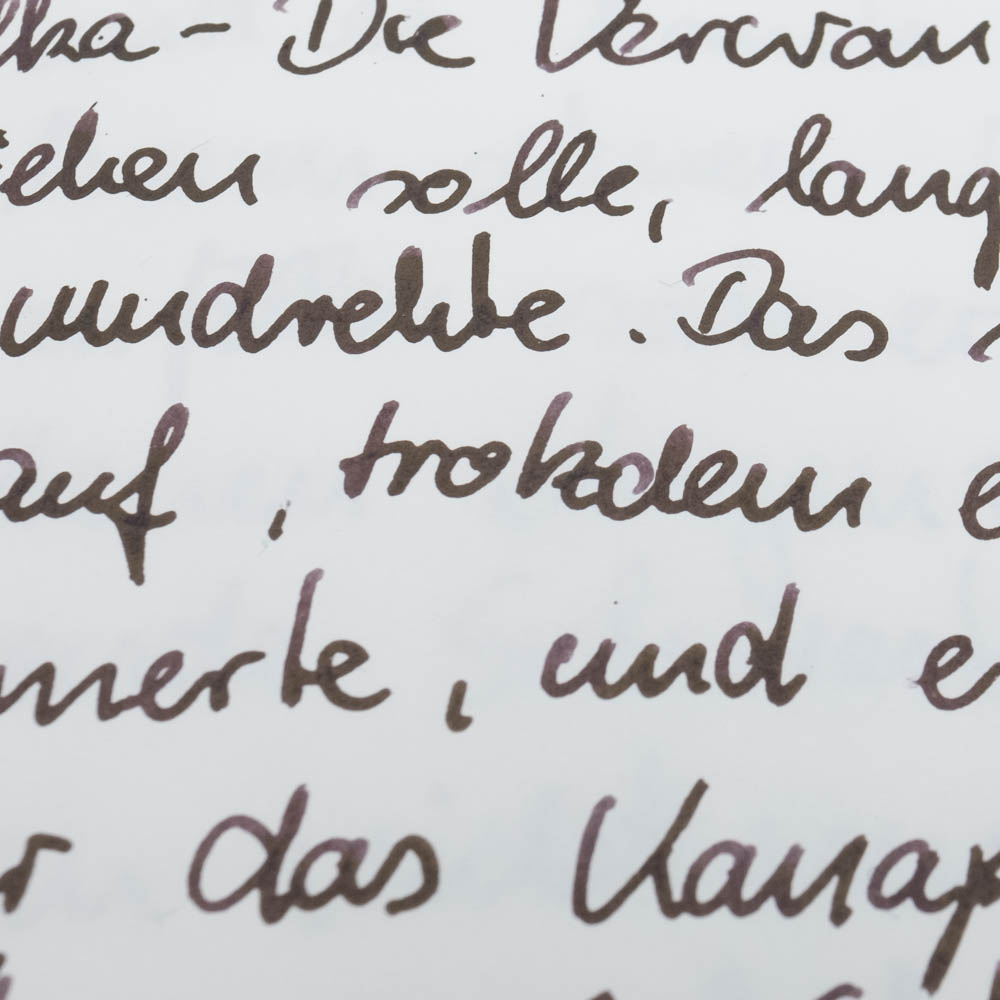 fka - Die Verwan
iehen solle, lang
umdrehte. Das s
auf, trotzdem e
merte, und er
r das Kanap